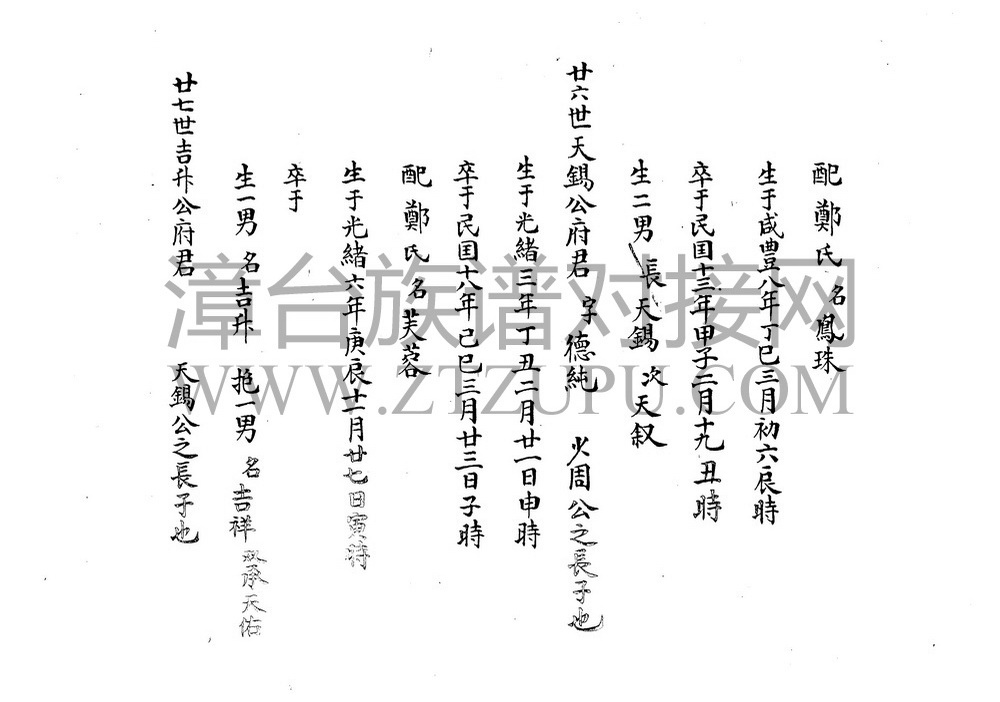 配鄭氏 名鳳珠
生于咸豐八年丁巳三月初六辰時
卒于民国十三年甲子二月十九丑時
生二男 長天錫 次天叙
廿六世天錫公府君 字德純 火周公之長子也
生于光緒三年丁丑二月廿一日申時
卒于民国十八年己巳三月廿三日子時
配鄭氏 名芙蓉
生于光緒六年庚辰十一月廿七日寅時
卒于
生一男 名吉升 抱一男 名吉祥 双承天佑
廿七世吉升公府君 天錫公之長子也
漳台族谱对接网
WWW.ZTZUPU.COM